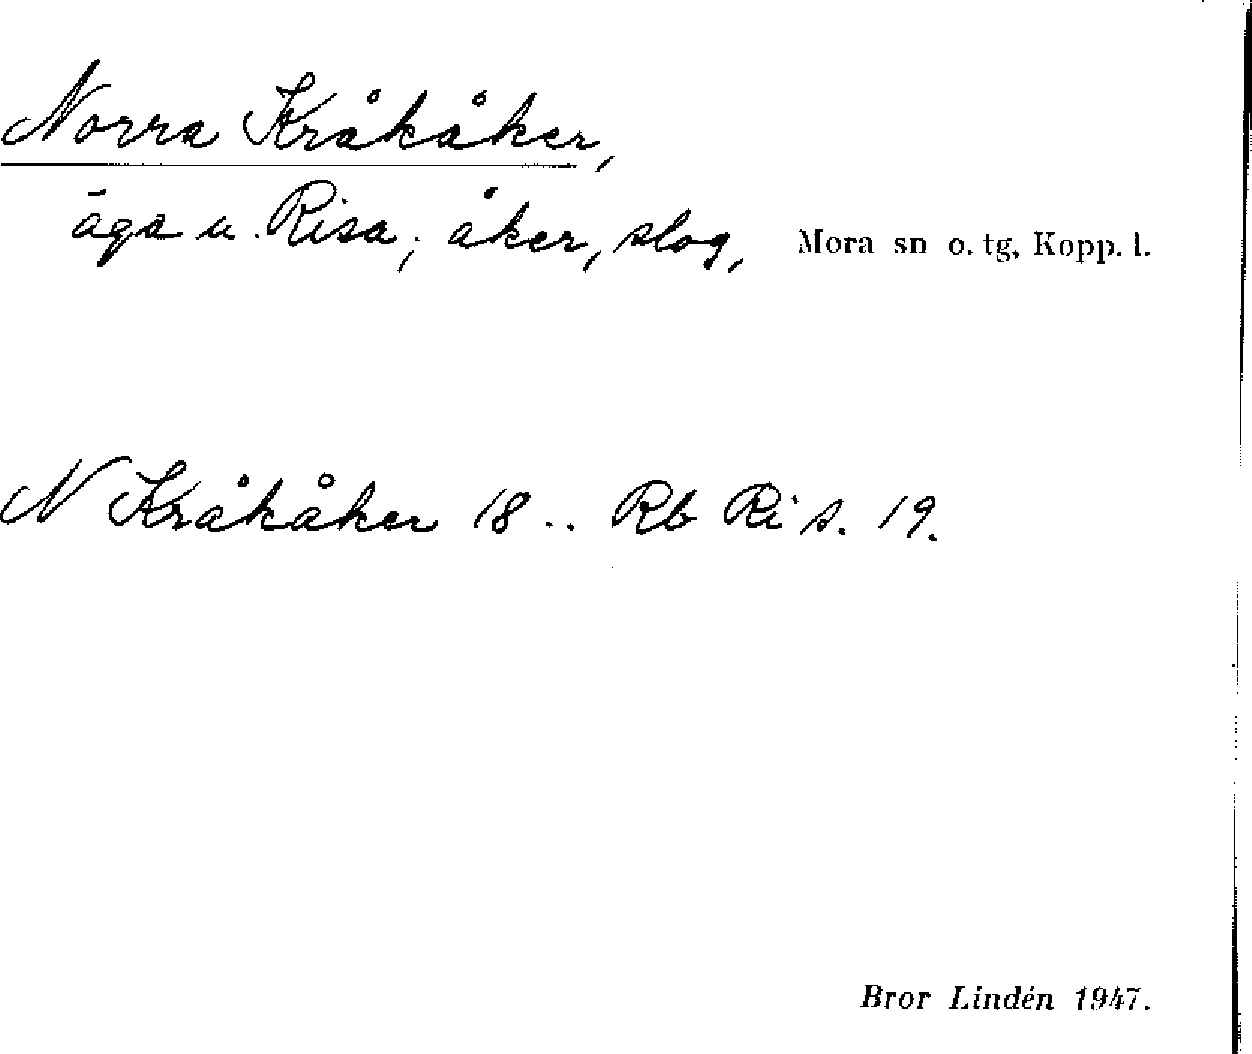 Norra Kråkåker,
äga u. Risa; åker, slog, Mora sn o. tg, Kopp. l.
N Kråkåker 18.. Rb Ri s. 19.
Bror Lindén 1947.